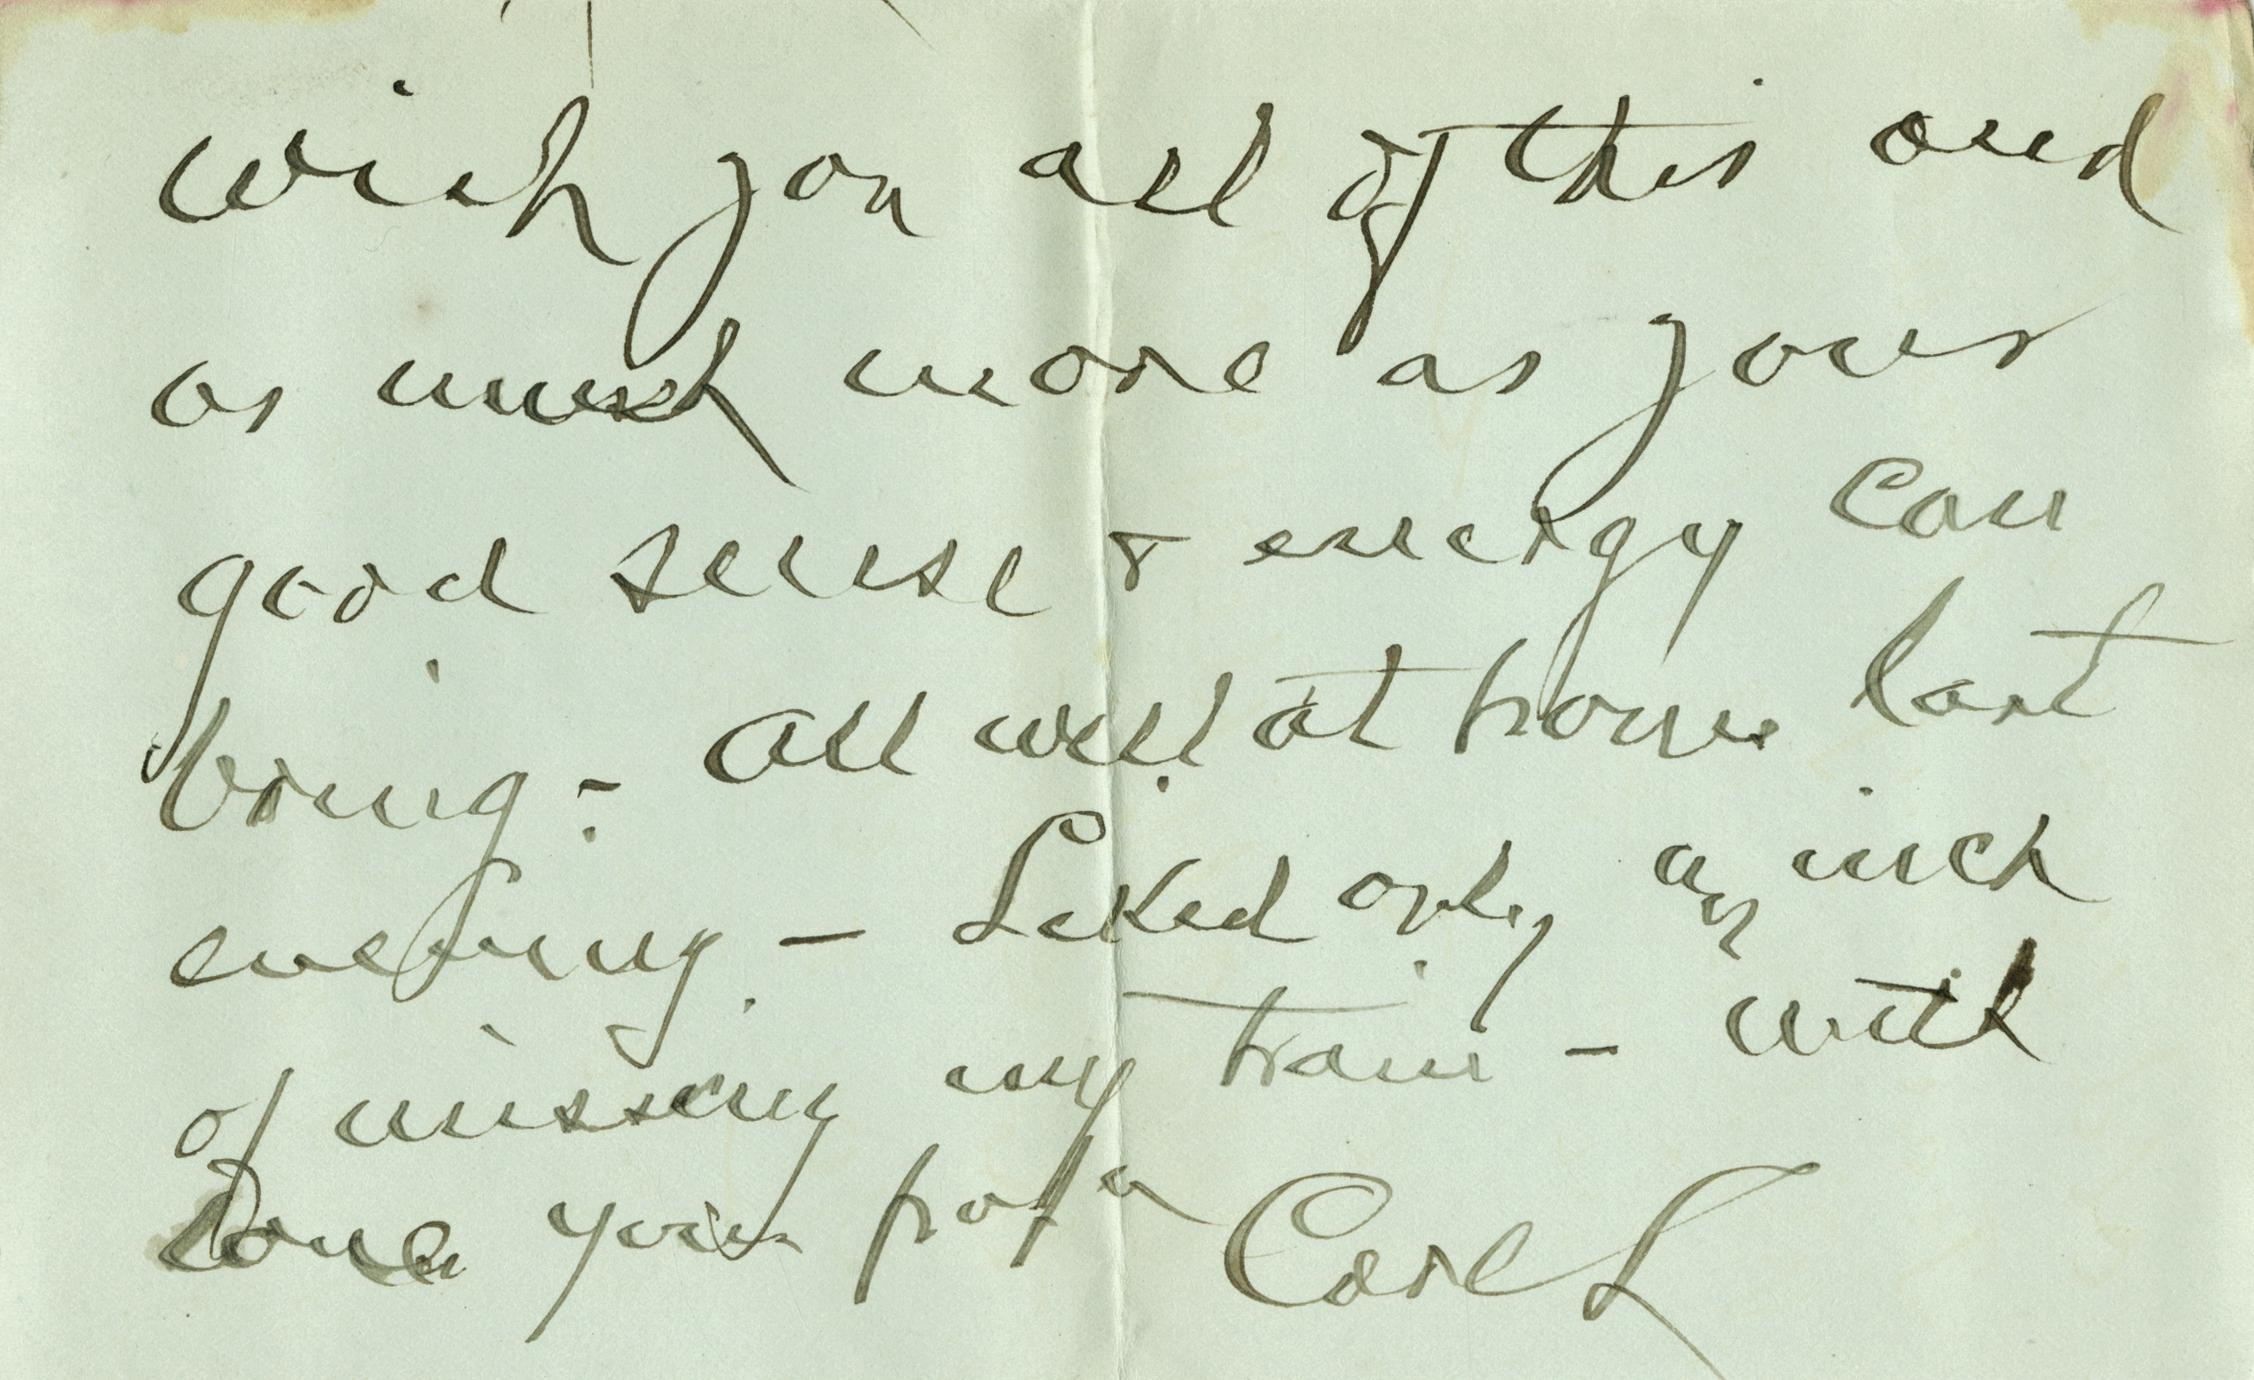 wish you all of this and
as much more as your
good sense & energy can
bring - All well at home last
evening. - Lacked only an inch
of missing my train - with
love your papa Carl